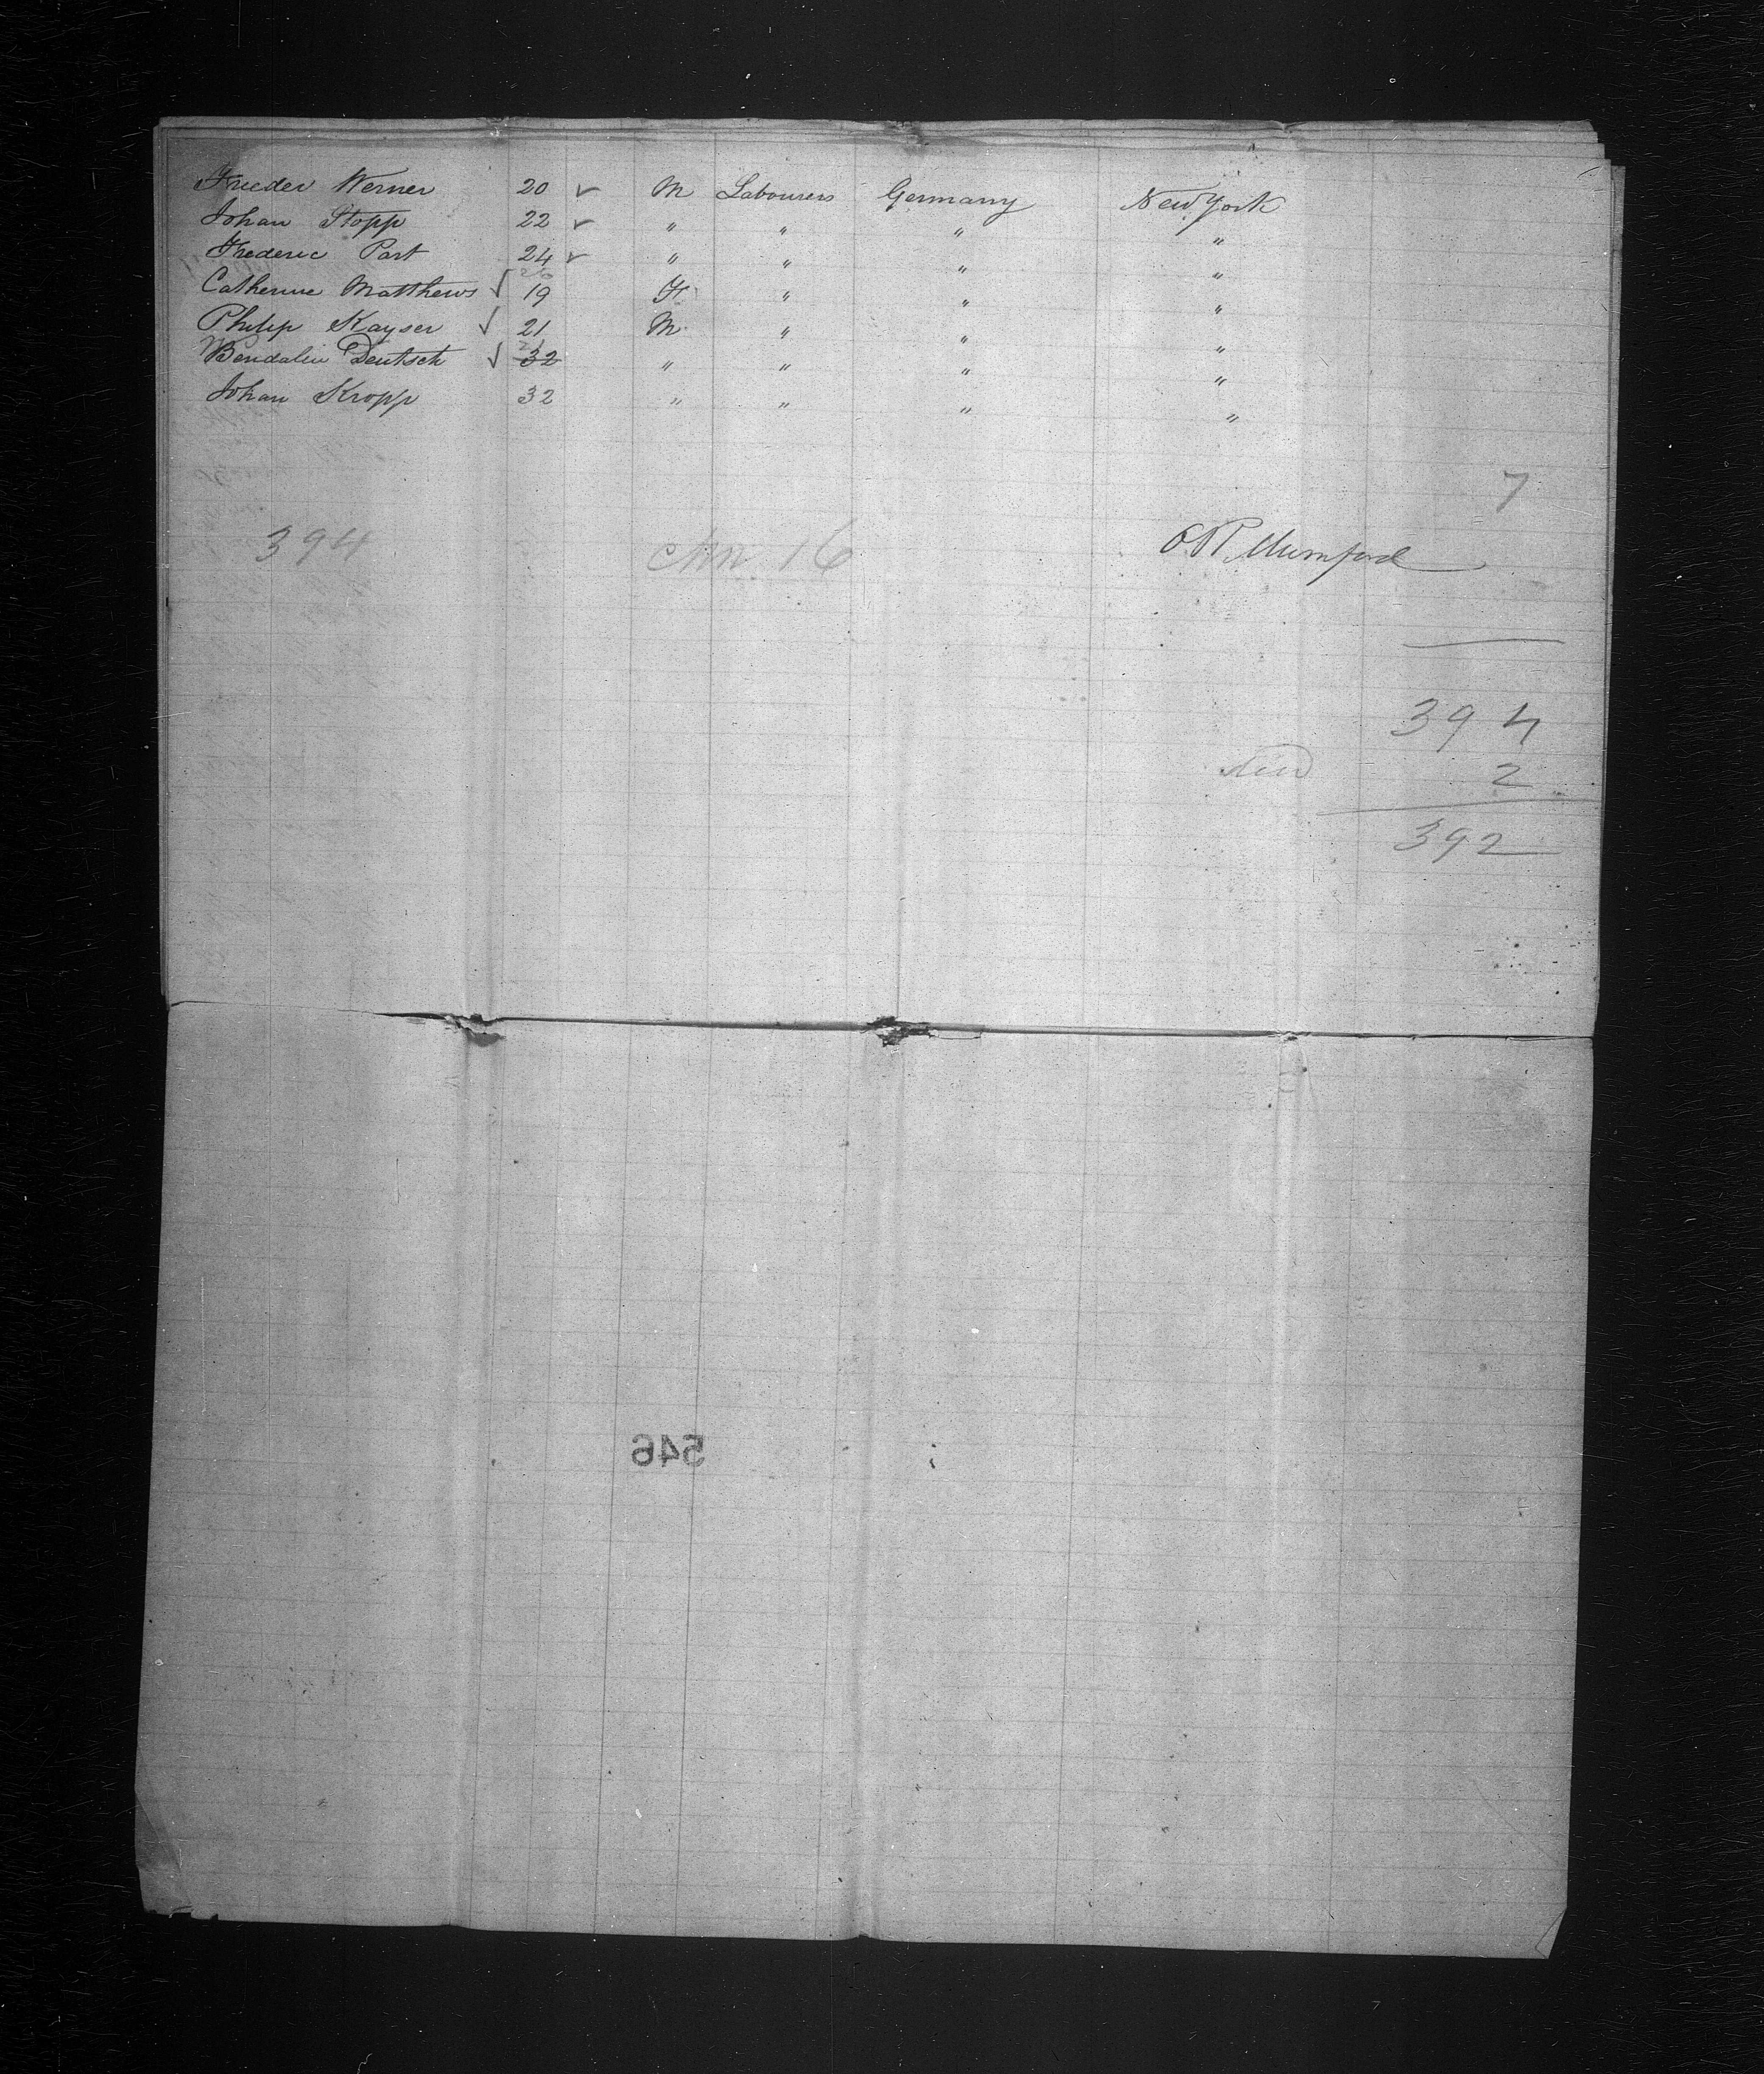 Frieder Werner 20 ✓ M Labourers Germany New York
Johan Stopp 22 ✓ " " " "
Frederic Part 24 ✓ " " " "
Catherine Matthews ✓ 26 19 F " " "
Philip Kayser ✓ 21 M " " "
Wendalin Deutsch ✓ 21 32 " " " "
Johan Kropp 32 " " " "
7
394 16 Mumford
394
2
392
546